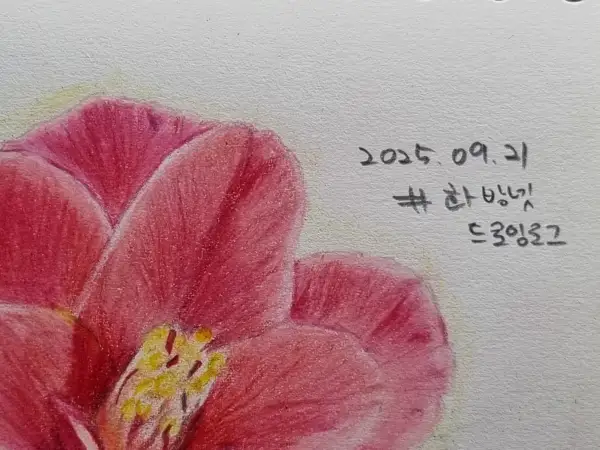 2025.09.21
# 화방넷
드로잉로그